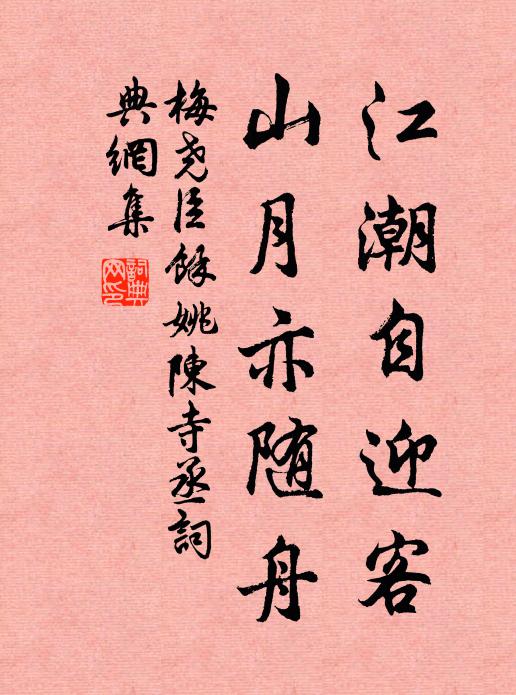 江潮自迎客
山月亦随舟
梅尧臣餘姚陳寺丞詞
典網集
詞典
网印